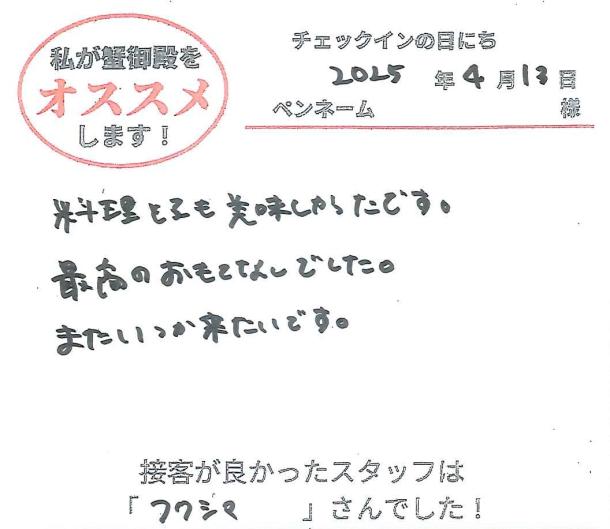 私が蟹御殿を
オススメ
します！
チェックインの日にち
2025 年 4 月 13 日
ペンネーム 様
料理とても美味しかったです。
最高のおもてなしでした。
またいつか来たいです。
接客が良かったスタッフは
「フクシマ」さんでした！